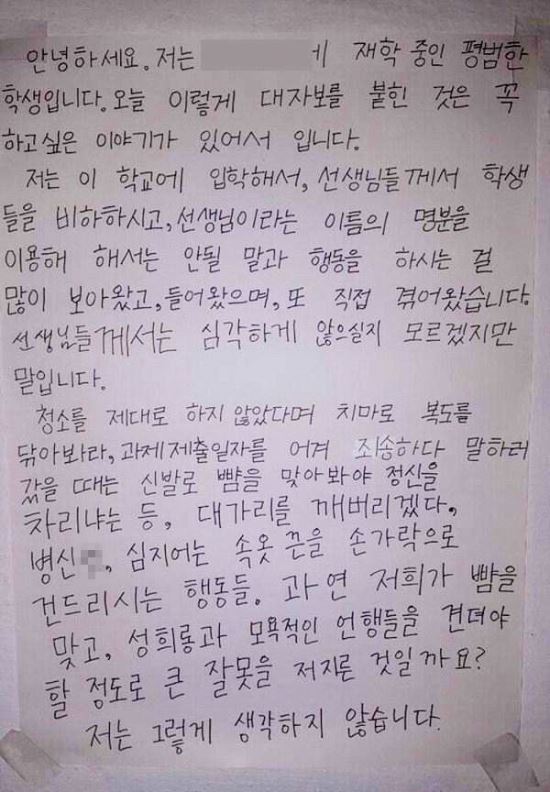 안녕하세요. 저는 에 재학 중인 평범한
학생입니다. 오늘 이렇게 대자보를 붙힌 것은 꼭
하고싶은 이야기가 있어서 입니다.
저는 이 학교에 입학해서, 선생님들께서 학생
들을 비하하시고, 선생님이라는 이름의 명분을
이용해 해서는 안될 말과 행동을 하시는 걸
많이 보아왔고, 들어왔으며, 또 직접 겪어왔습니다.
선생님들께서는 심각하게 않으실지 모르겠지만
말입니다.
청소를 제대로 하지 않았다며 치마로 복도를
닦아봐라, 과제제출일자를 어겨 죄송하다 말하러
갔을 때는 신발로 뺨을 맞아봐야 정신을
차리냐는 등, 대가리를 깨버리겠다,
병신, 심지어는 속옷 끈을 손가락으로
건드리시는 행동들. 과연 저희가 뺨을
맞고, 성희롱과 모욕적인 언행들을 견뎌야
할 정도로 큰 잘못을 저지른 것일까요?
저는 그렇게 생각하지 않습니다.